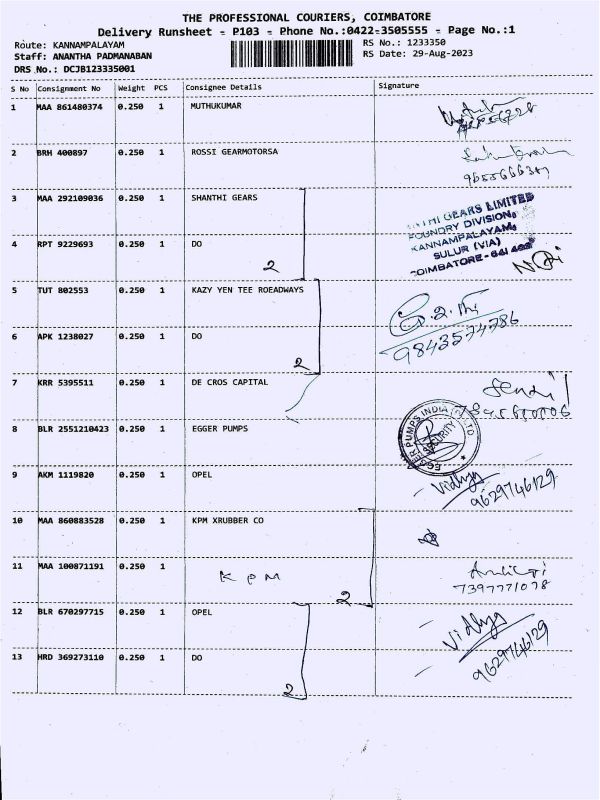 THE PROFESSIONAL COURIERS, COIMBATORE
Delivery Runsheet - P103 - Phone No.:0422-3505555 - Page No.:1
Route: KANNAMPALAYAM
RS No.: 1233350
Staff: ANANTHA PADMANABAN
RS Date: 29-Aug-2023
DRS No.: DCJB123335001
S No Consignment No Weight PCS Consignee Details Signature
1 MAA 861480374 0.250 1 MUTHUKUMAR
2 BRH 400897 0.250 1 ROSSI GEARMOTORSA
3 MAA 292109036 0.250 1 SHANTHI GEARS
GEARS LIMITED
FOUNDRY DIVISION,
KANNAMPALAYAM,
SULUR (VIA)
4 RPT 9229693 0.250 1 DO
2
5 TUT 802553 0.250 1 KAZY YEN TEE ROEADWAYS
9843574786
6 APK 1238027 0.250 1 DO
2
7 KRR 5395511 0.250 1 DE CROS CAPITAL
8 BLR 2551210423 0.250 1 EGGER PUMPS
EGGER PUMPS INDIA
SECURITY
9 AKM 1119820 0.250 1 OPEL
Vidhya
9629746129
10 MAA 860883528 0.250 1 KPM XRUBBER CO
11 MAA 100871191 0.250 1
KPM
7397771078
2
12 BLR 670297715 0.250 1 OPEL
Vidhya
9629746129
13 HRD 369273110 0.250 1 DO
2